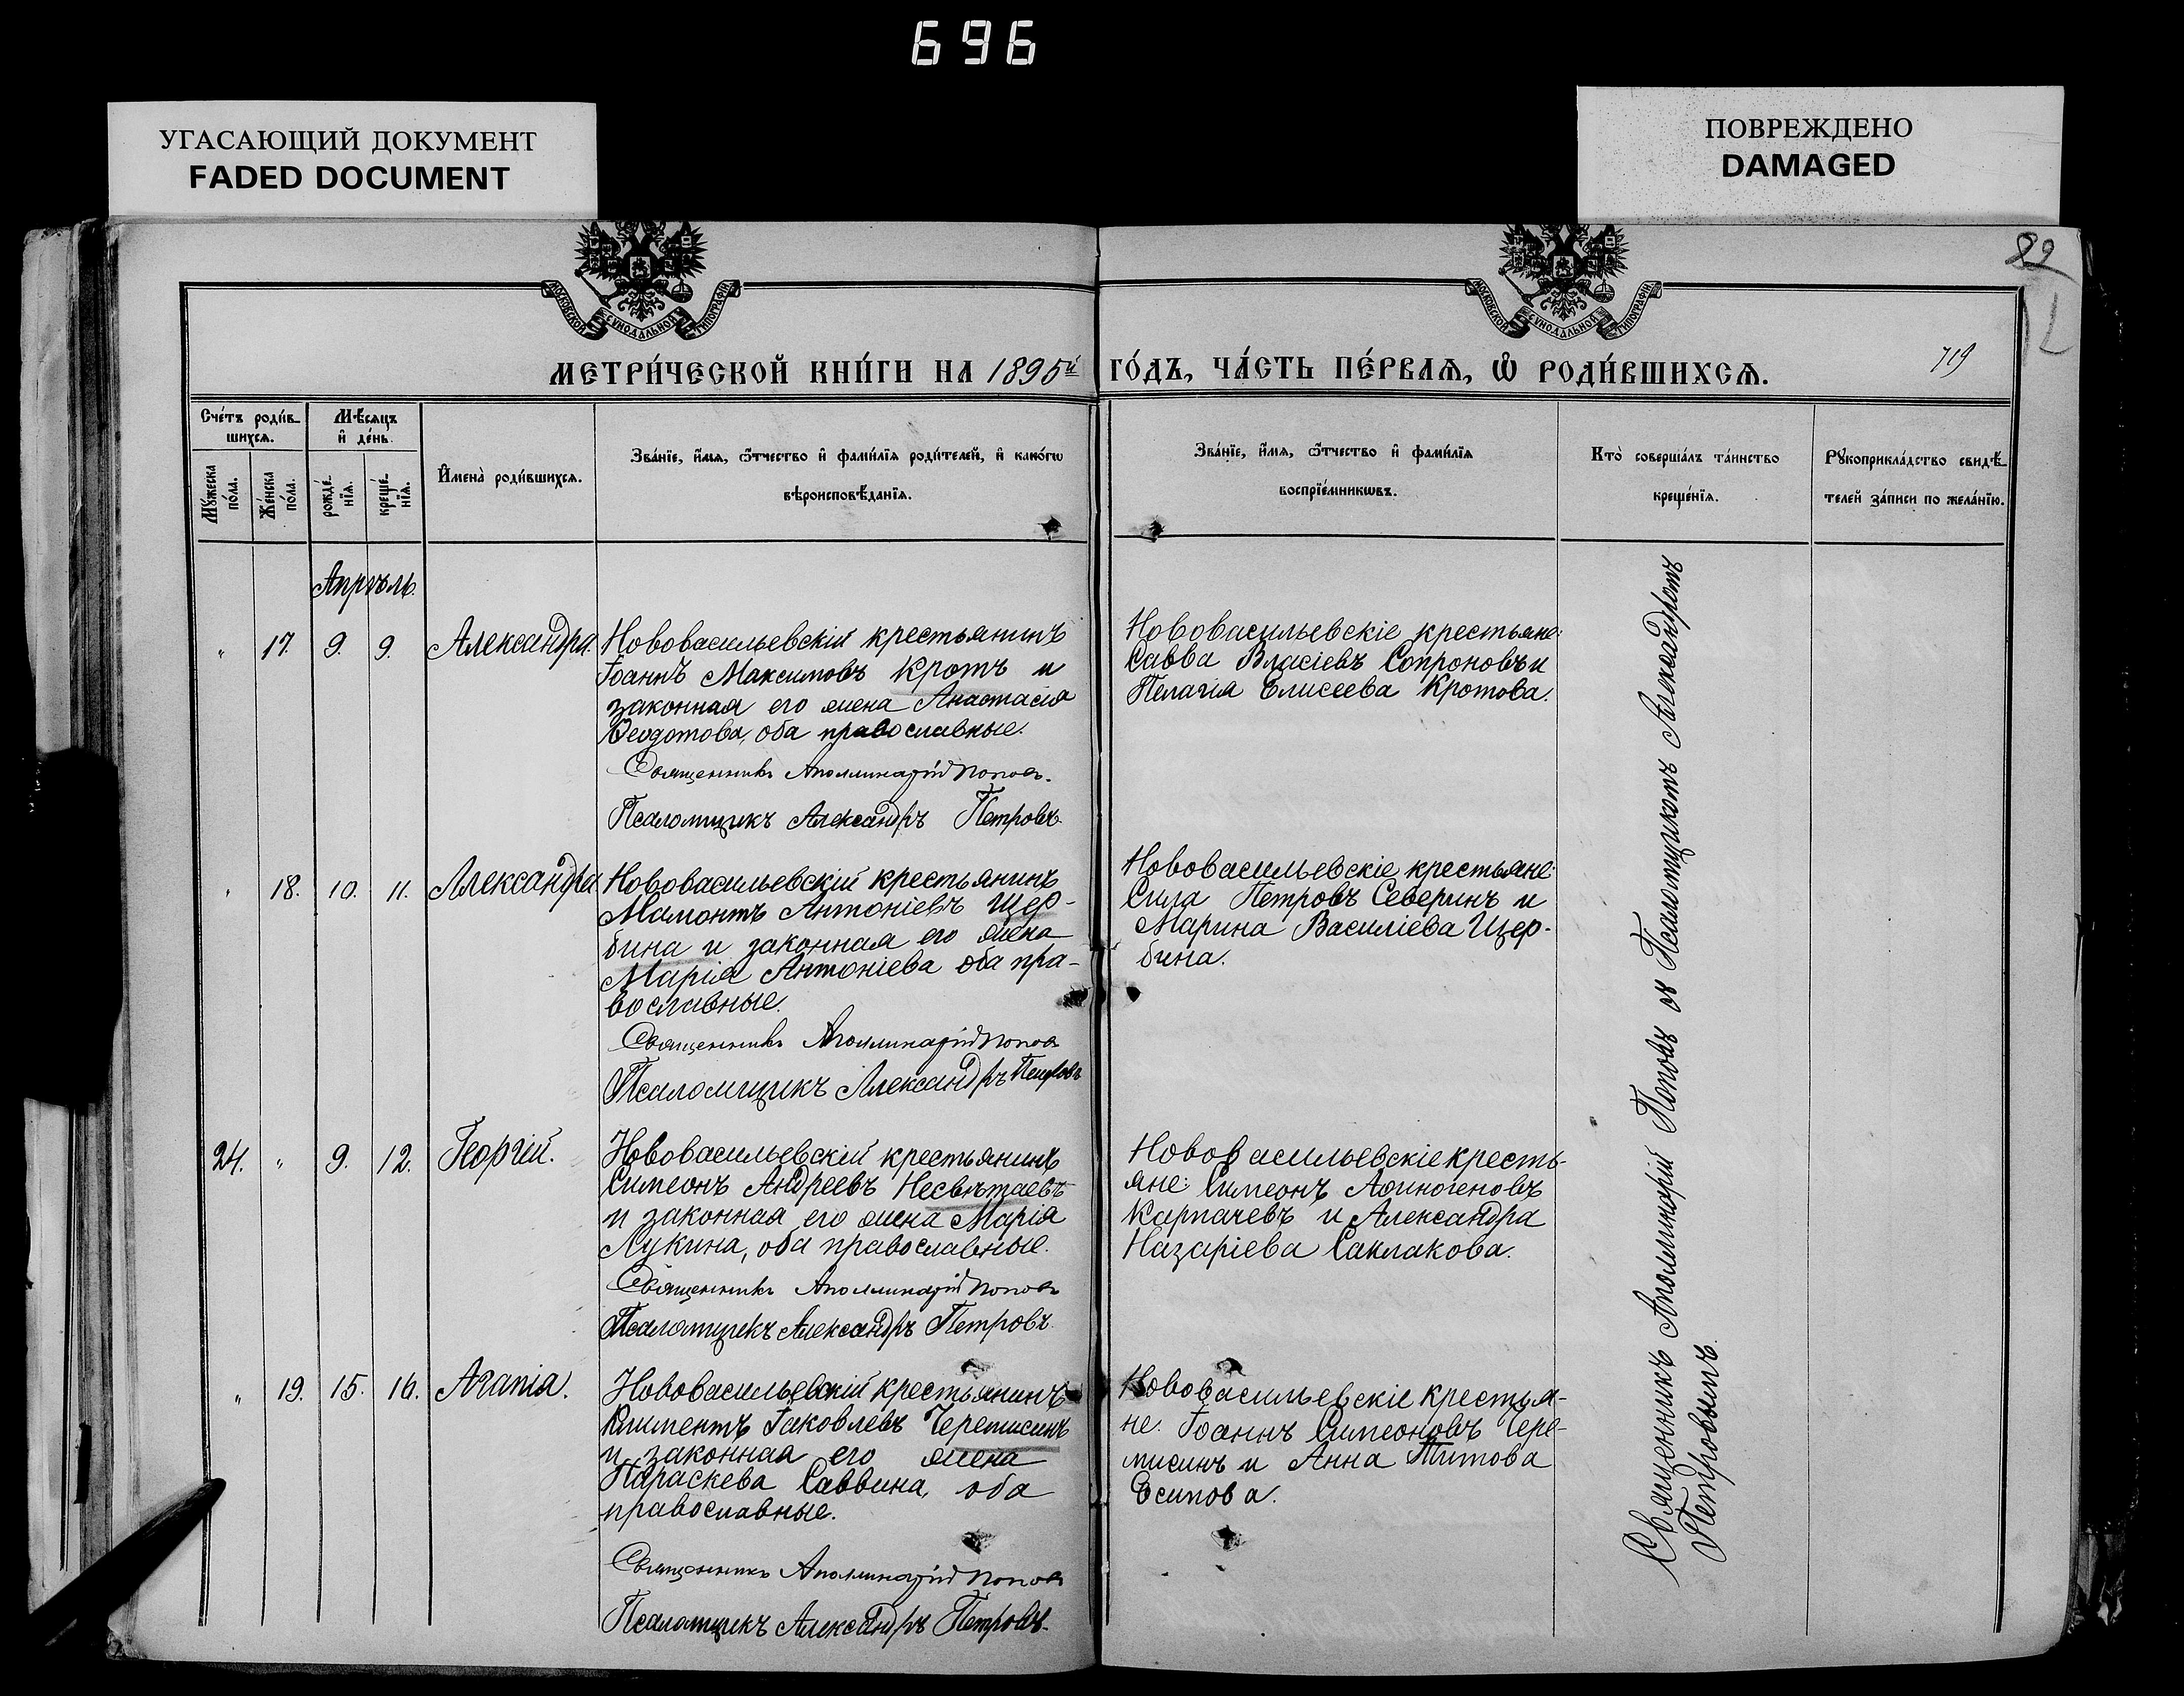 696
УГАСАЮЩИЙ ДОКУМЕНТ
FADED DOCUMENT
ПОВРЕЖДЕНО
DAMAGED
МОСКОВСКОЙ СѴНОДАЛЬНОЙ ТИПОГРАФІИ
МОСКОВСКОЙ СѴНОДАЛЬНОЙ ТИПОГРАФІИ
89
МЕТРИ́ЧЕСКОЙ КНИ́ГИ НА 1895й ГО́ДЪ, ЧА́СТЬ ПЕ́РВАѦ, Ѽ РОДИ́ВШИХСѦ.
719
Сче́тъ роди́в-
шихсѧ.
Мѣ́сѧцъ
и҆ де́нь.
Мꙋжеска
по́ла.
Же́нска
по́ла.
рожде́-
нїѧ.
креще́-
нїѧ.
И҆мена̀ роди́вшихсѧ.
Зва́нїе, и҆́мѧ, ѻ҆́тчество и҆ фами́лїѧ роди́телей, и҆ како́гѡ
вѣроисповѣ́данїѧ.
Зва́нїе, и҆́мѧ, ѻ҆́тчество и҆ фами́лїѧ
воспрїе́мникѡвъ.
Кто̀ соверша́лъ та́инство
креще́нїѧ.
Рꙋкоприкла́дство свидѣ́-
телей за́писи по жела́нїю.
Апрѣль.
" 17. 9. 9. Александра.
Нововасильевскій крестьянинъ
Іоаннъ Максимовъ Кротъ и
законная его жена Анастасія
Ѳеодотова, оба православные.
Священникъ Аполлинарій Поповъ.
Псаломщикъ Александръ Петровъ.
Нововасильевскіе крестьяне:
Савва Власіевъ Сопроновъ и
Пелагія Елисеева Кротова.
" 18. 10. 11. Александра
Нововасильевскій крестьянинъ
Мамонтъ Антоніевъ Щер-
бина и законная его жена
Марія Антоніева оба пра-
вославные.
Священникъ Аполлинарій Поповъ
Псаломщикъ Александръ Петровъ
Нововасильевскіе крестьяне:
Сила Петровъ Северинъ и
Марина Василіева Щер-
бина.
24. " 9. 12. Георгій.
Нововасильевскій крестьянинъ
Симеонъ Андреевъ Несвѣтаевъ
и законная его жена Марія
Лукина, оба православные.
Священникъ Аполлинарій Поповъ
Псаломщикъ Александръ Петровъ.
Нововасильевскіе кресть-
яне: Симеонъ Аѳиногеновъ
Карпачевъ и Александра
Назаріева Саклакова.
" 19. 15. 16. Агапія.
Нововасильевскій крестьянинъ
Климентъ Іаковлевъ Черемисинъ
и законная его жена
Параскева Саввина, оба
православные.
Священникъ Аполлинарій Поповъ
Псаломщикъ Александръ Петровъ.
Нововасильевскіе крестья-
не: Іоаннъ Симеоновъ Чере-
мисинъ и Анна Титова
Есипова.
Священникъ Аполлинарій Поповъ съ Псаломщикомъ Александромъ
Петровымъ.